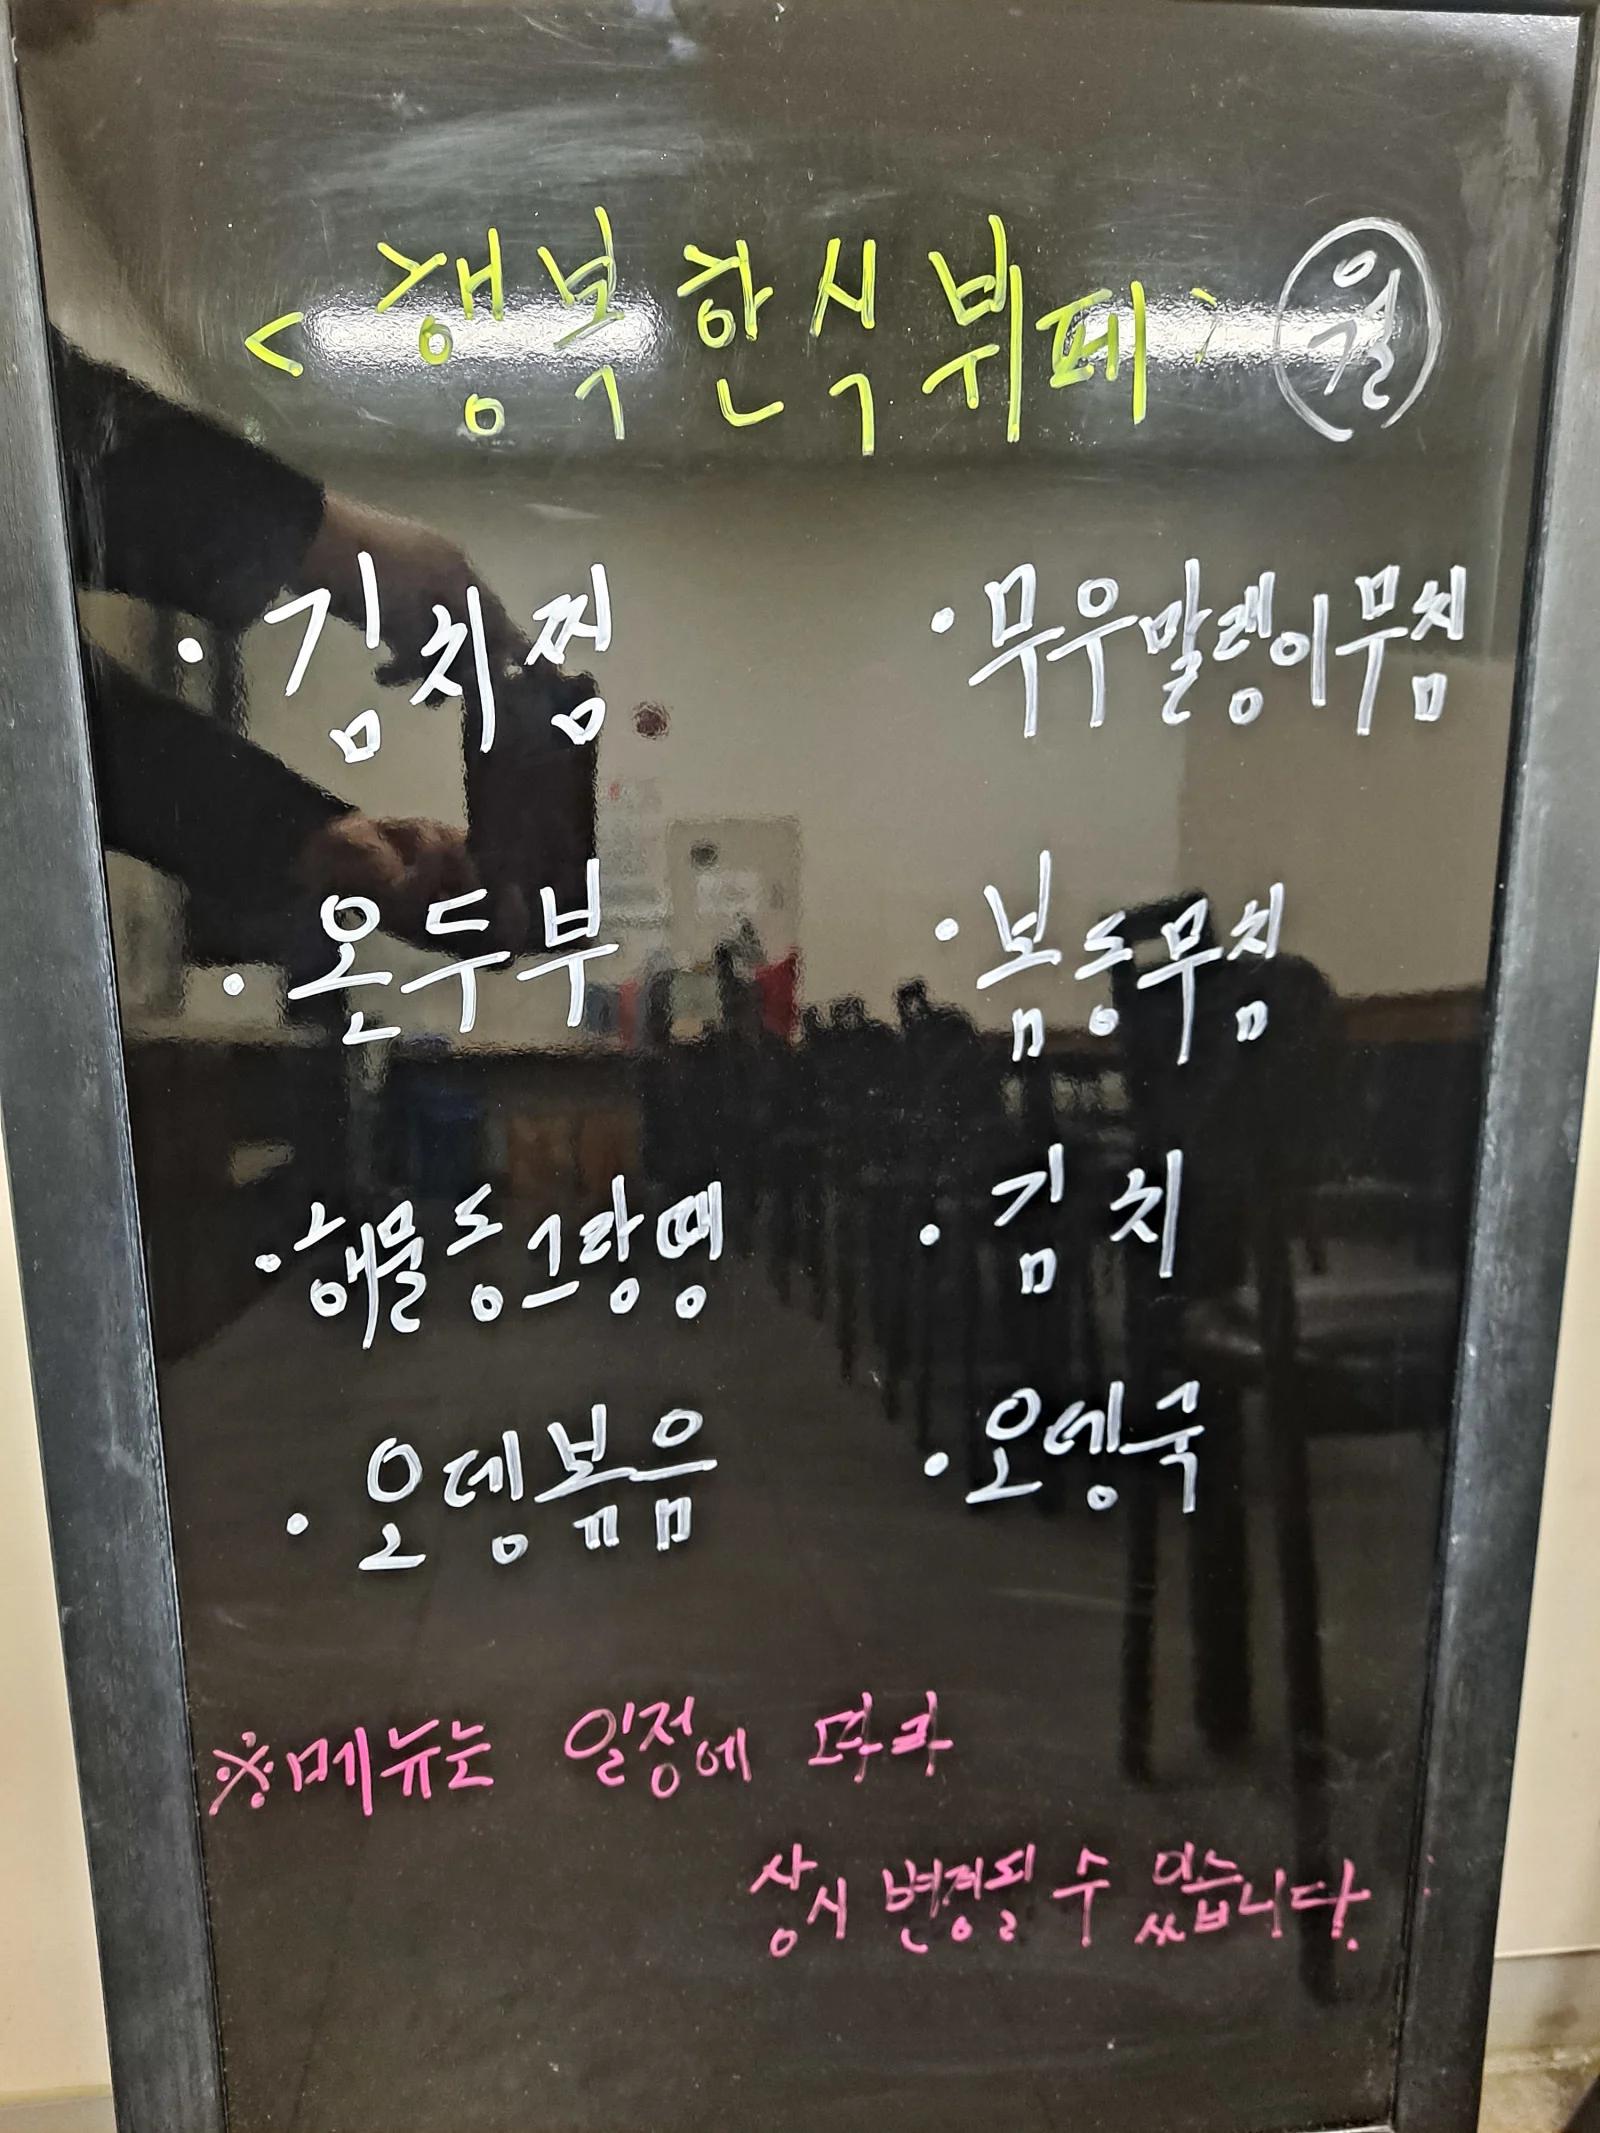 <행복한식뷔페> 월
· 김치찜
· 온두부
· 해물동그랑땡
· 오뎅볶음
· 무우말랭이무침
· 봄동무침
· 김치
· 오뎅국
※메뉴는 일정에 따라
상시 변경될 수 있습니다.